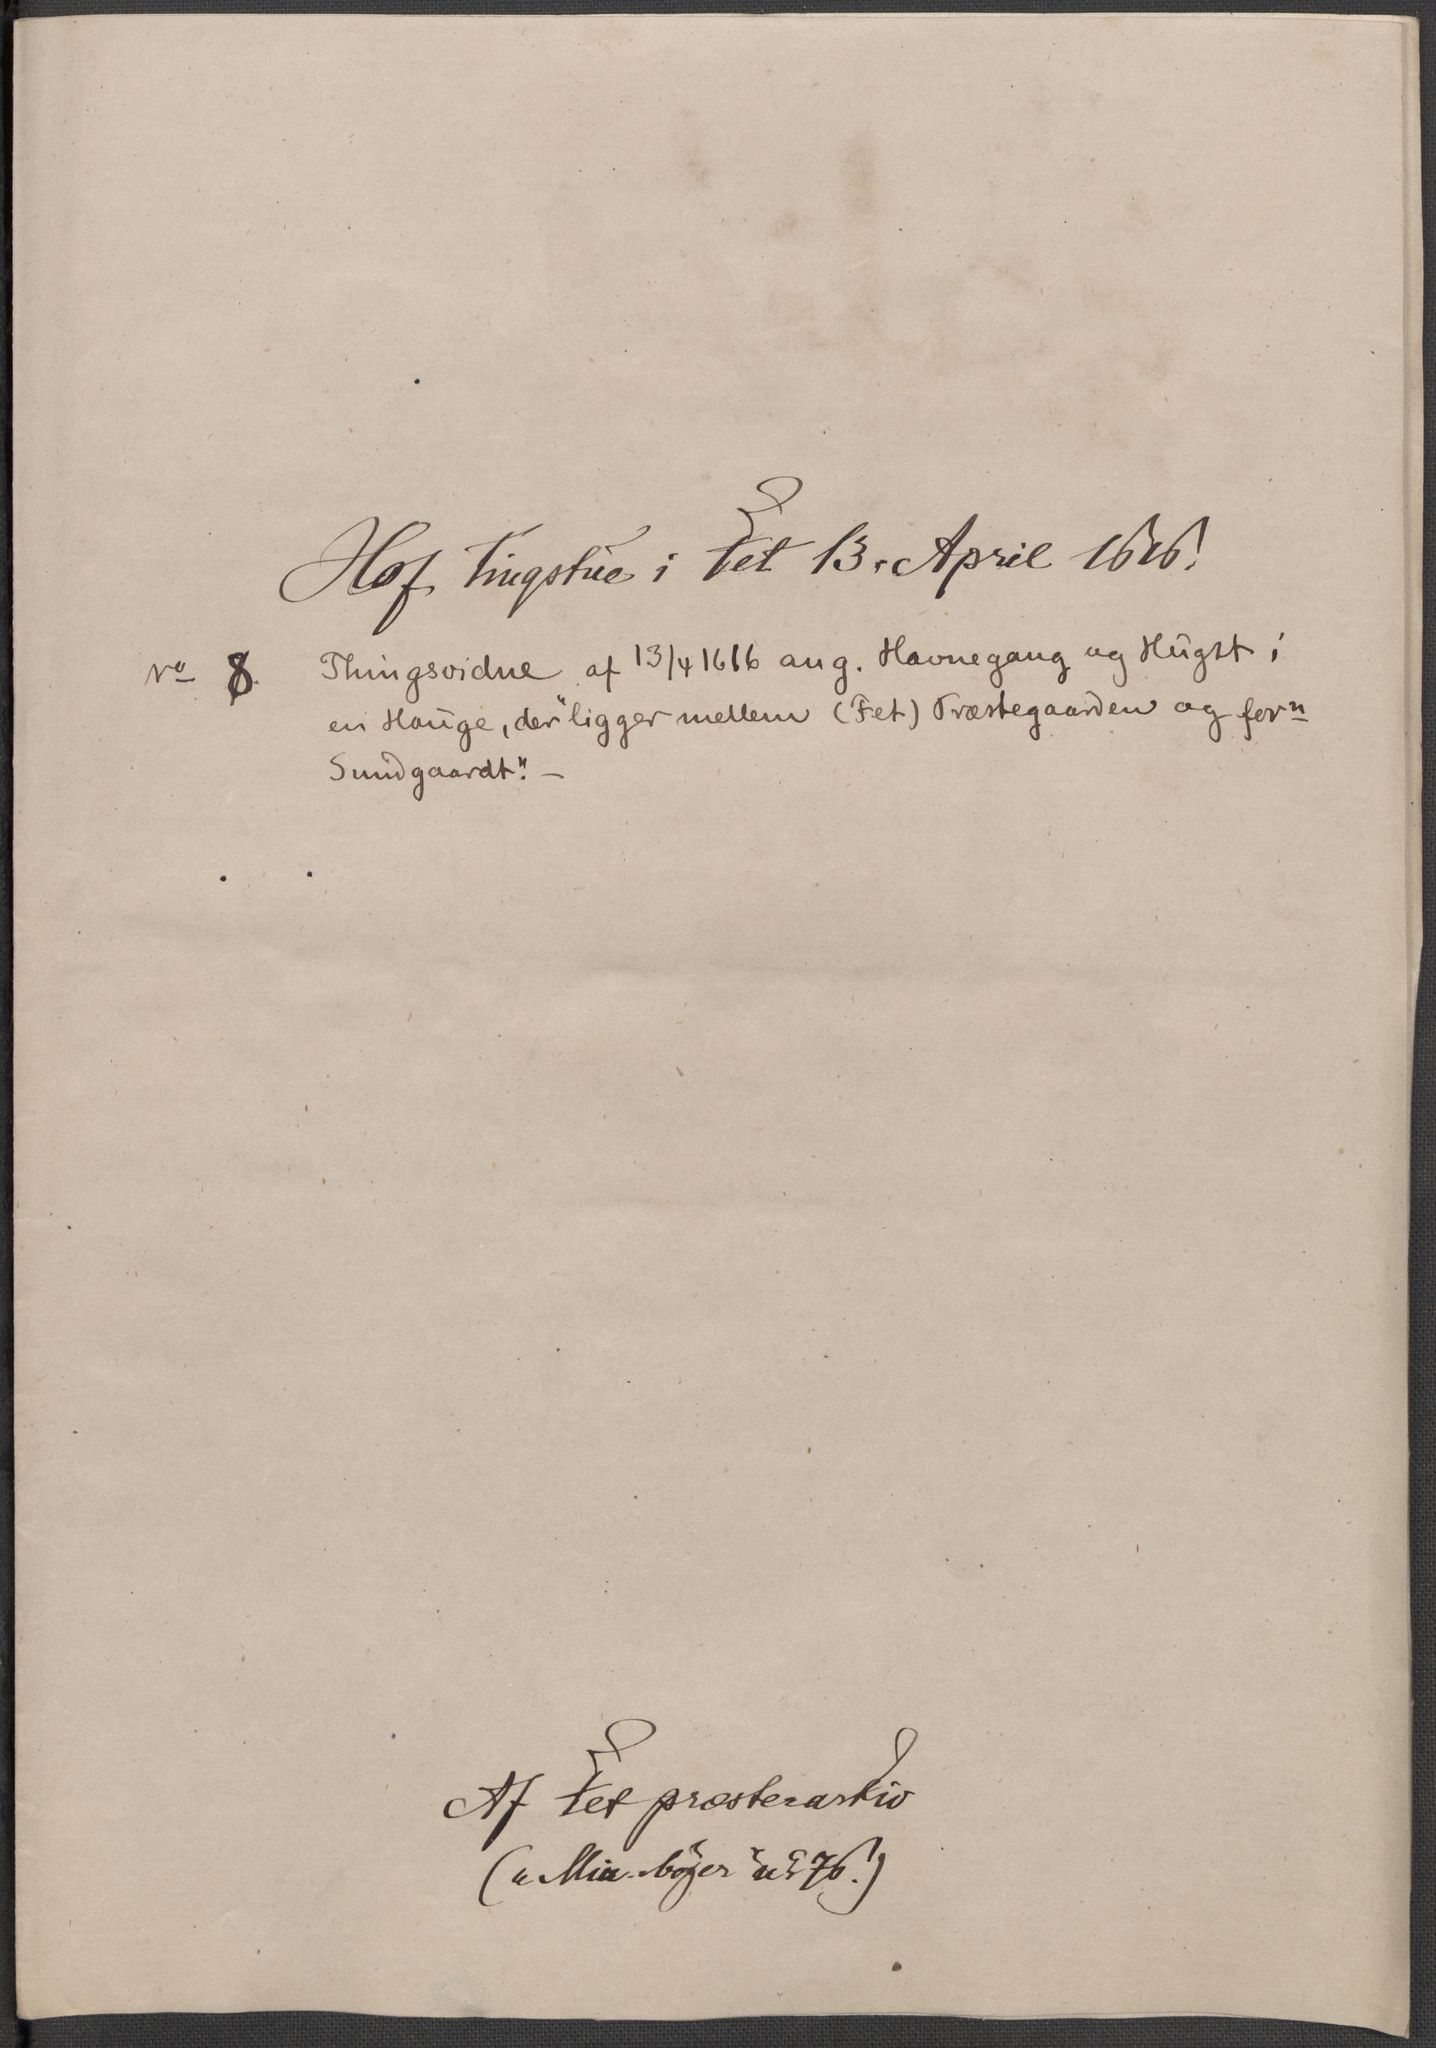 Hof tingstue i Fet 13. April 1616.
No 8 Thingsvidne af 13/4 1616 ang. Havnegang og Hugst i
en Hauge, der "ligger mellem (Fet) Præstegaarden og forn
Sundgaardt". —
Af Fet præstearkiv
(„Min.bøger“ nr 76.)